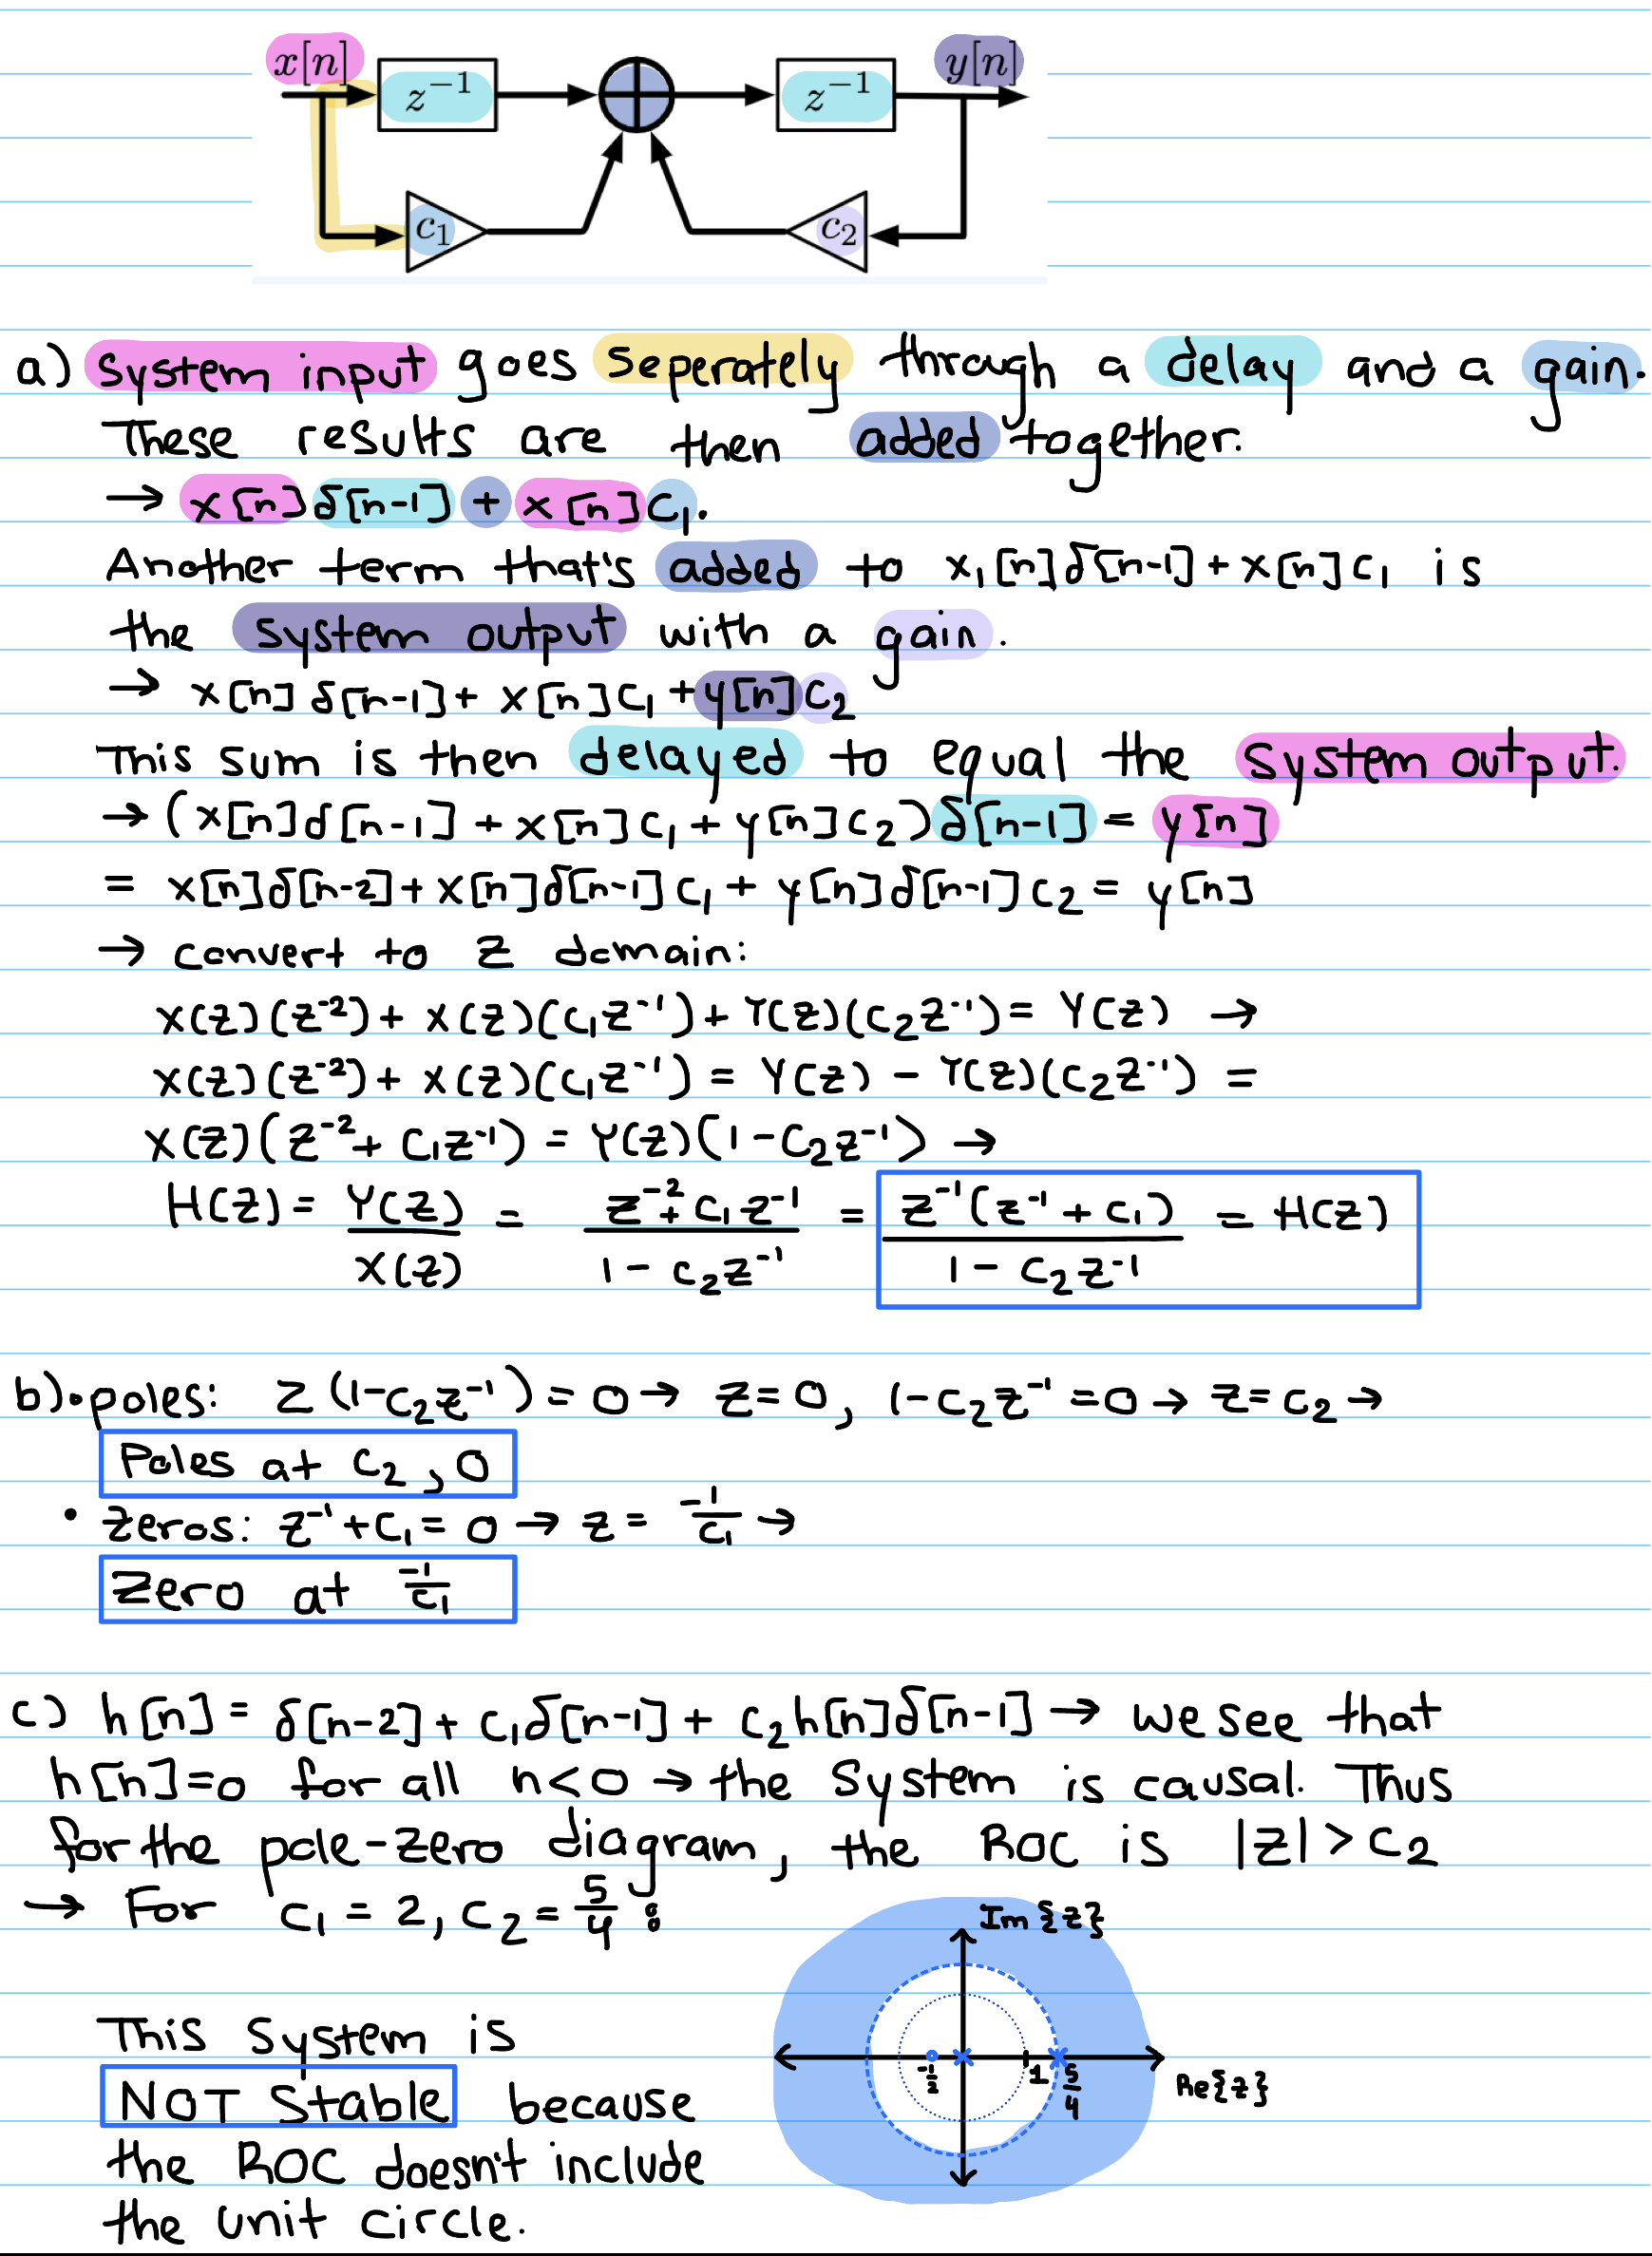 x[n] z⁻¹ z⁻¹ y[n]
c₁ c₂
a) System input goes seperately through a delay and a gain.
These results are then added together.
→ x[n]δ[n-1] + x[n]c₁.
Another term that's added to x₁[n]δ[n-1] + x[n]c₁ is
the system output with a gain.
→ x[n]δ[n-1] + x[n]c₁ + y[n]c₂
This sum is then delayed to equal the system output.
→ (x[n]δ[n-1] + x[n]c₁ + y[n]c₂)δ[n-1] = y[n]
= x[n]δ[n-2] + x[n]δ[n-1]c₁ + y[n]δ[n-1]c₂ = y[n]
→ convert to z domain:
X(z)(z⁻²) + X(z)(c₁z⁻¹) + Y(z)(c₂z⁻¹) = Y(z) →
X(z)(z⁻²) + X(z)(c₁z⁻¹) = Y(z) - Y(z)(c₂z⁻¹) =
X(z)(z⁻² + c₁z⁻¹) = Y(z)(1-c₂z⁻¹) →
H(z) = Y(z)/X(z) = (z⁻² + c₁z⁻¹)/(1 - c₂z⁻¹) = z⁻¹(z⁻¹ + c₁)/(1 - c₂z⁻¹) = H(z)
b) • poles: z(1-c₂z⁻¹) = 0 → z = 0, 1-c₂z⁻¹ = 0 → z = c₂ →
Poles at c₂, 0
• zeros: z⁻¹ + c₁ = 0 → z = -1/c₁ →
Zero at -1/c₁
c) h[n] = δ[n-2] + c₁δ[n-1] + c₂h[n]δ[n-1] → we see that
h[n]=0 for all n<0 → the system is causal. Thus
for the pole-zero diagram, the ROC is |z| > c₂
→ For c₁ = 2, c₂ = 5/4 :
Im{z}
-1/2 1 5/4
Re{z}
This system is
NOT Stable because
the ROC doesn't include
the unit circle.